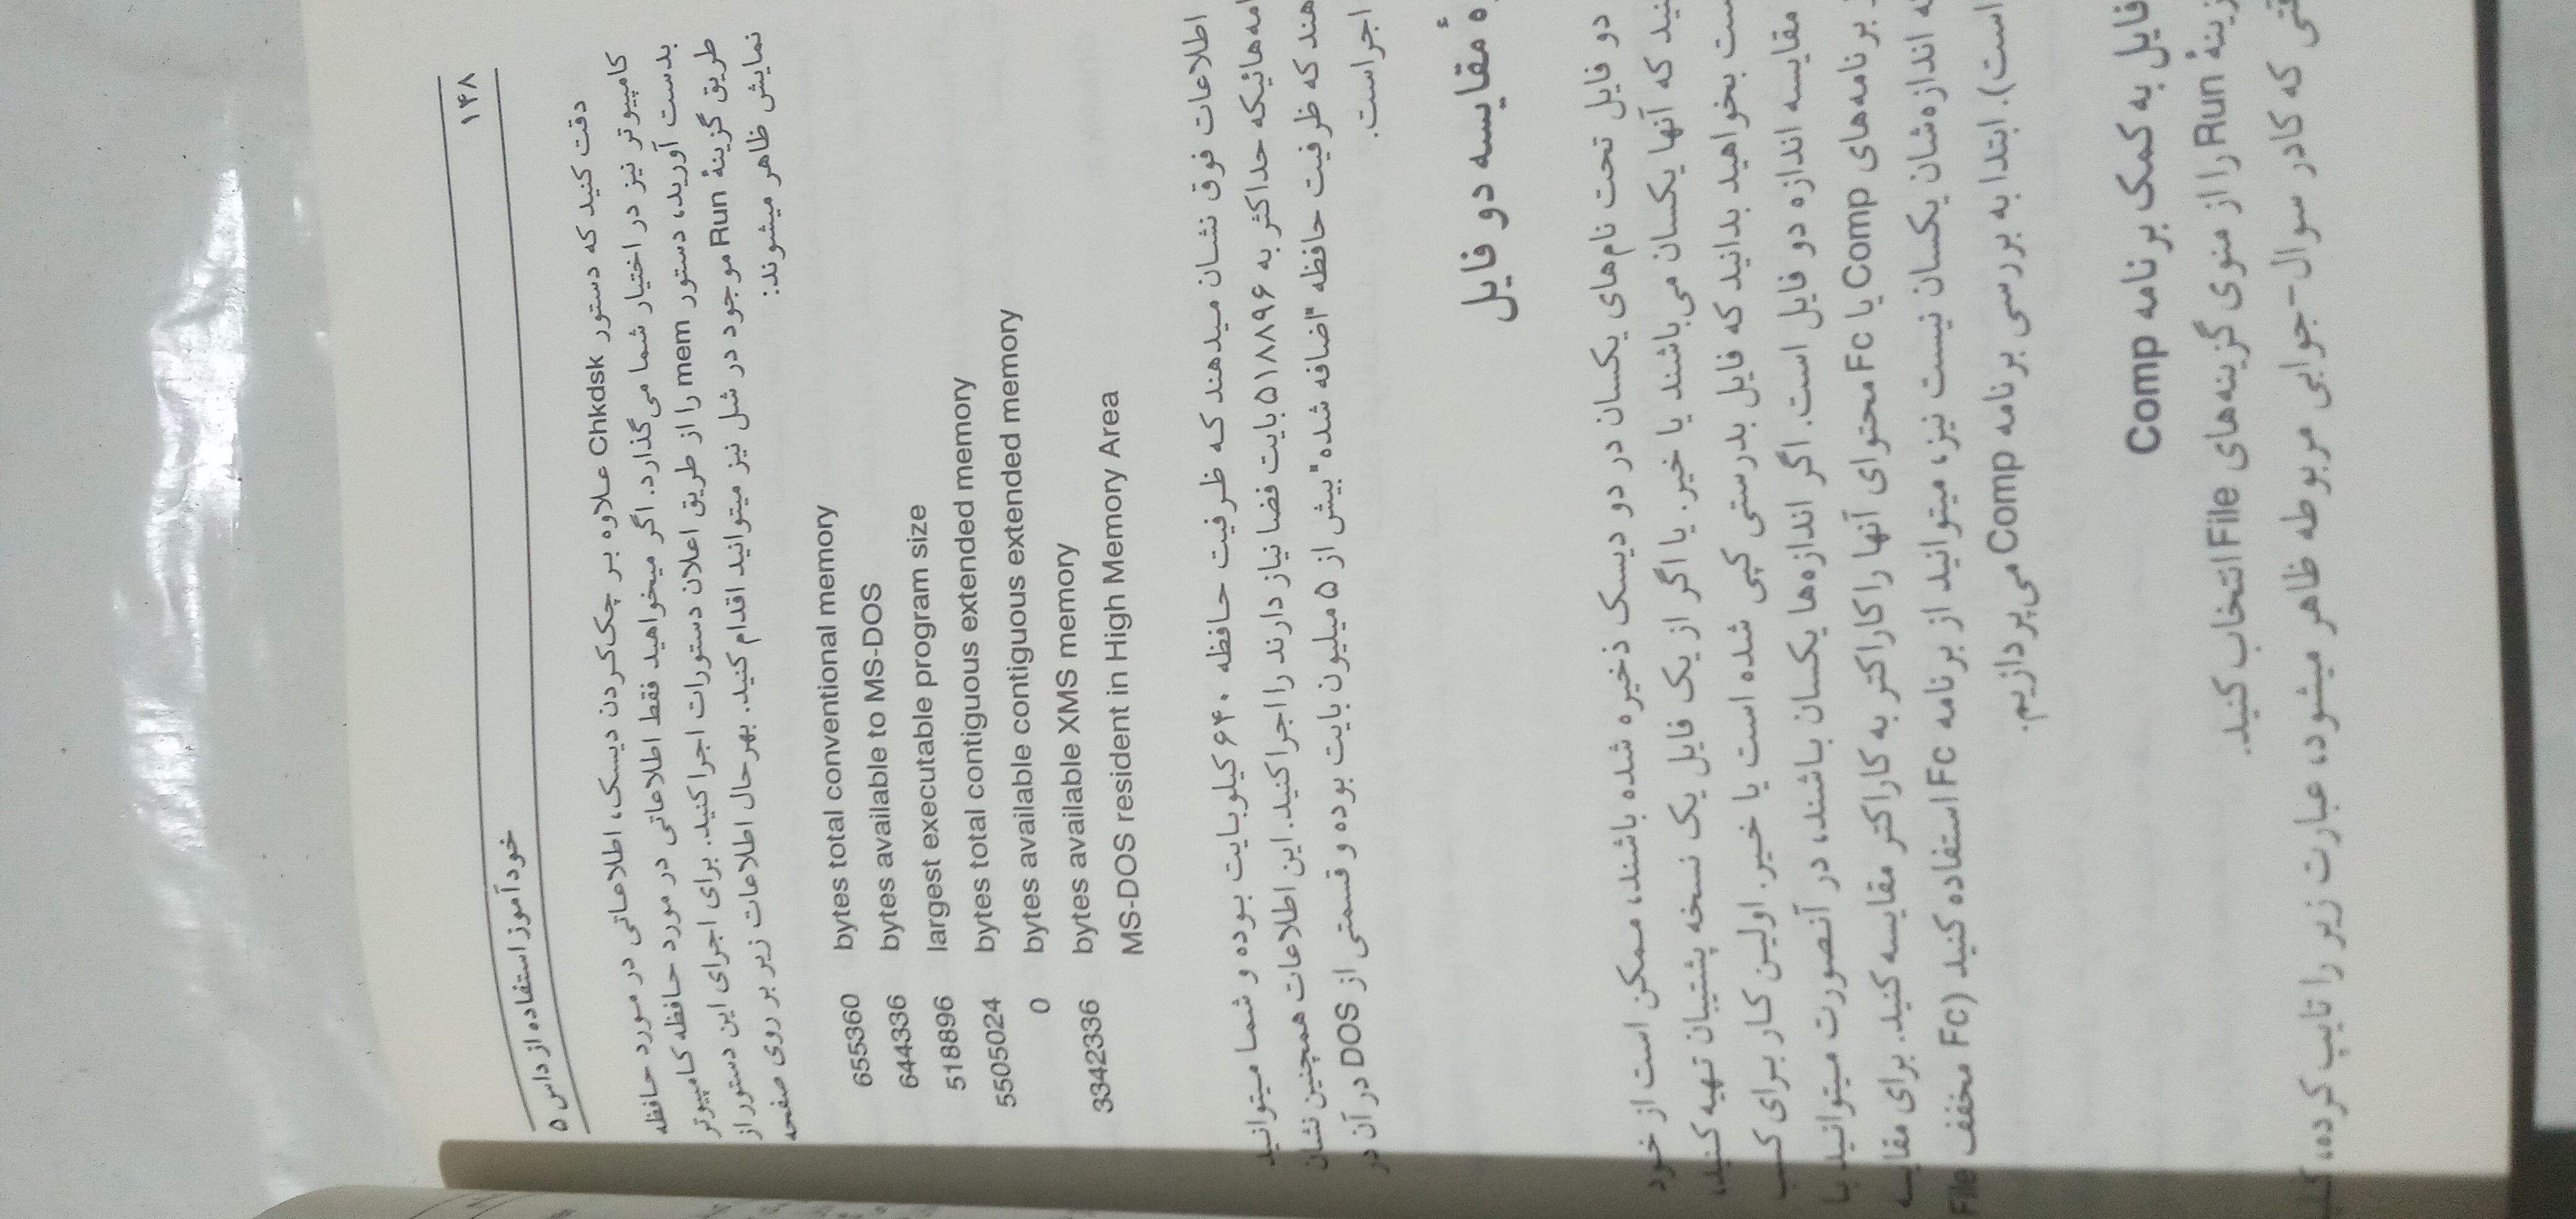 ۱۴۸
خودآموز استفاده از داس ۵
دقت کنید که دستور Chkdsk علاوه بر چک‌کردن دیسک، اطلاعاتی در مورد حافظه
کامپیوتر نیز در اختیار شما می‌گذارد. اگر میخواهید فقط اطلاعاتی در مورد حافظه کامپیوتر
بدست آورید، دستور mem را از طریق اعلان دستورات اجرا کنید. برای اجرای این دستور از
طریق گزینهٔ Run موجود در شل نیز میتوانید اقدام کنید. بهرحال اطلاعات زیر بر روی صفحه
نمایش ظاهر میشوند:
655360 bytes total conventional memory
644336 bytes available to MS-DOS
518896 largest executable program size
5505024 bytes total contiguous extended memory
0 bytes available contiguous extended memory
3342336 bytes available XMS memory
MS-DOS resident in High Memory Area
اطلاعات فوق نشان میدهند که ظرفیت حافظه ۶۴۰ کیلوبایت بوده و شما میتوانید
حداکثر به ۵۱۸۸۹۶ بایت فضا نیاز دارند را اجرا کنید. این اطلاعات همچنین نشان
که ظرفیت حافظه "اضافه شده" بیش از ۵ میلیون بایت بوده و قسمتی از DOS در آن در
اجراست.
مقایسه دو فایل
دو فایل تحت نام‌های یکسان در دو دیسک ذخیره شده باشند، ممکن است از خود
که آنها یکسان می‌باشند یا خیر. یا اگر از یک فایل یک نسخه پشتیبان تهیه کنید،
بخواهید بدانید که فایل بدرستی کپی شده است یا خیر. اولین کار برای
مقایسه اندازه دو فایل است. اگر اندازه‌ها یکسان باشند، در آنصورت میتوانید با
برنامه‌های Comp یا Fc محتوای آنها را کاراکتر به کاراکتر مقایسه کنید. برای
اندازه‌شان یکسان نیست نیز، میتوانید از برنامه Fc استفاده کنید (Fc مخفف File
است). ابتدا به بررسی برنامه Comp می‌پردازیم.
فایل به کمک برنامه Comp
Run را از منوی گزینه‌های File انتخاب کنید.
که کادر سوال-جوابی مربوطه ظاهر میشود، عبارت زیر را تایپ کرده،